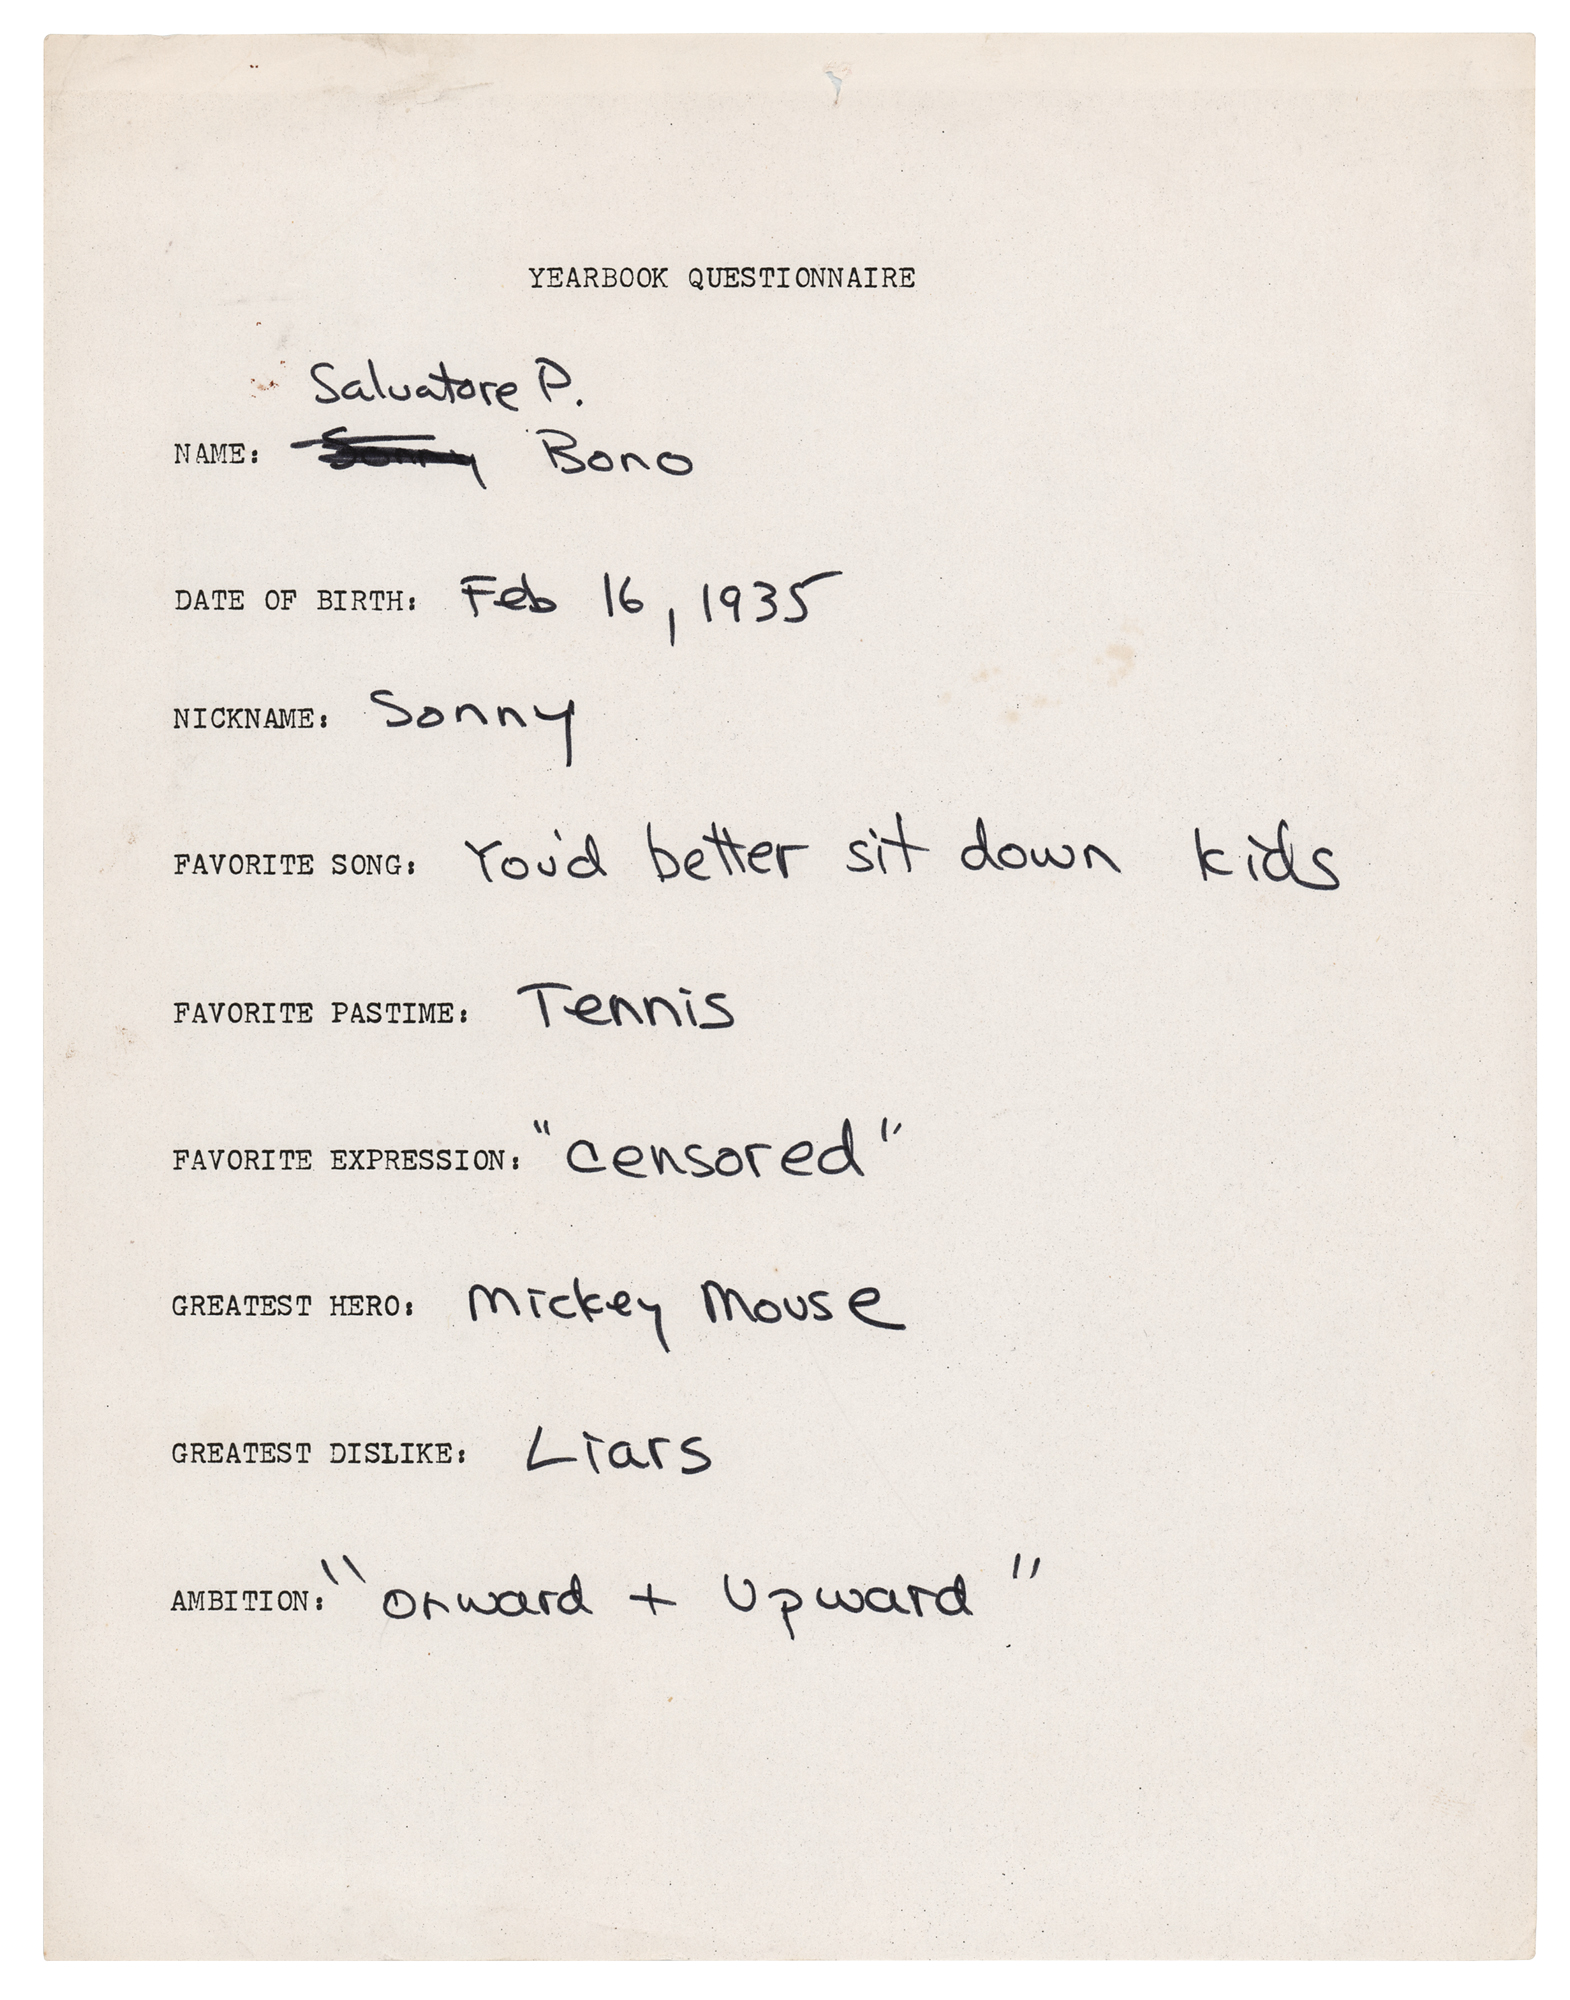 YEARBOOK QUESTIONNAIRE
Salvatore P.
NAME: Sonny Bono
DATE OF BIRTH: Feb 16, 1935
NICKNAME: Sonny
FAVORITE SONG: You'd better sit down kids
FAVORITE PASTIME: Tennis
FAVORITE EXPRESSION: "censored"
GREATEST HERO: Mickey Mouse
GREATEST DISLIKE: Liars
AMBITION: "Onward + Upward"